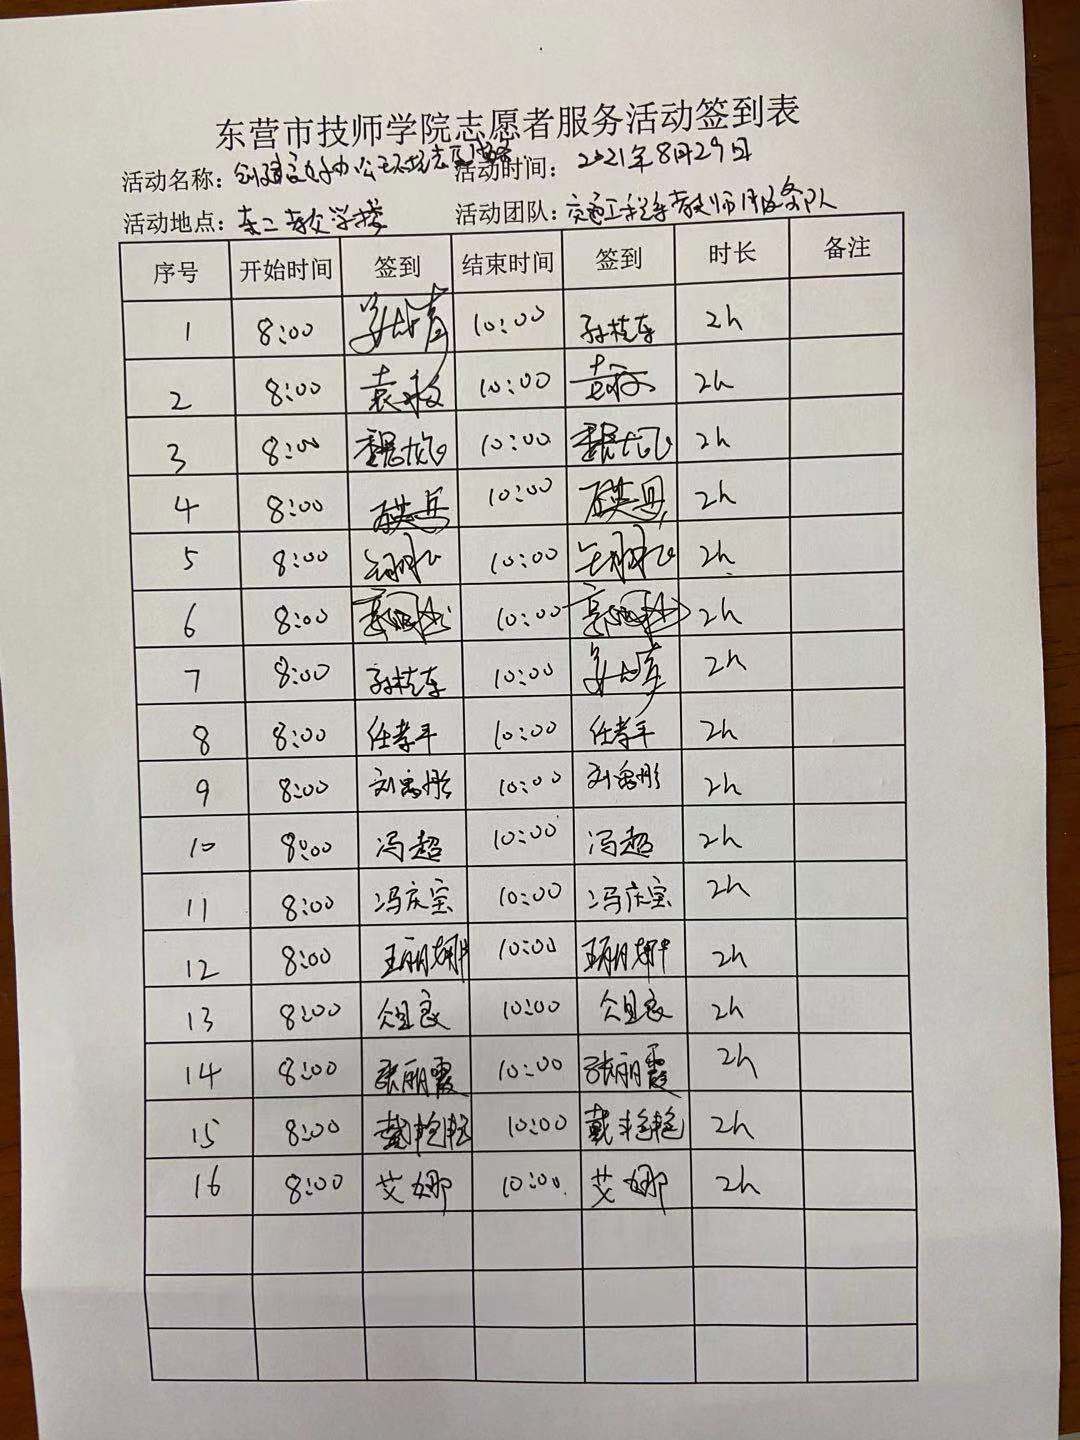 东营市技师学院志愿者服务活动签到表
活动名称：创建良好办公环境志愿服务 活动时间：2021年8月29日
活动地点：东二教学楼 活动团队：交通工程系教师服务队
序号 开始时间 签到 结束时间 签到 时长 备注
1 8:00 10:00 孙桂东 2h
2 8:00 袁 10:00 袁 2h
3 8:00 魏龙飞 10:00 魏龙飞 2h
4 8:00 10:00 2h
5 8:00 10:00 2h
6 8:00 10:00 2h
7 8:00 孙桂东 10:00 2h
8 8:00 任孝平 10:00 任孝平 2h
9 8:00 刘禹彤 10:00 刘禹彤 2h
10 8:00 冯超 10:00 冯超 2h
11 8:00 冯庆宝 10:00 冯庆宝 2h
12 8:00 王丽娜 10:00 王丽娜 2h
13 8:00 俎良 10:00 俎良 2h
14 8:00 张丽霞 10:00 张丽霞 2h
15 8:00 戴艳艳 10:00 戴艳艳 2h
16 8:00 艾娜 10:00 艾娜 2h